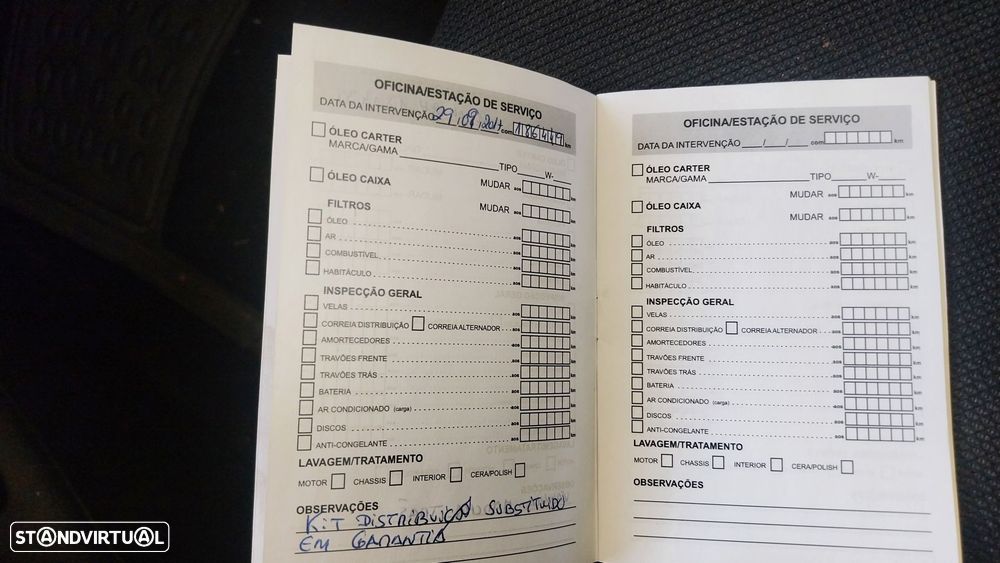 OFICINA/ESTAÇÃO DE SERVIÇO
DATA DA INTERVENÇÃO 29, 09, 2017 com 186449 km
ÓLEO CARTER
MARCA/GAMA TIPO W-
ÓLEO CAIXA MUDAR aos km
FILTROS MUDAR aos km
ÓLEO aos km
AR aos km
COMBUSTÍVEL aos km
HABITÁCULO aos km
INSPECÇÃO GERAL
VELAS aos km
CORREIA DISTRIBUIÇÃO CORREIA ALTERNADOR aos km
AMORTECEDORES aos km
TRAVÕES FRENTE aos km
TRAVÕES TRÁS aos km
BATERIA aos km
AR CONDICIONADO (carga) aos km
DISCOS aos km
ANTI-CONGELANTE aos km
LAVAGEM/TRATAMENTO
MOTOR CHASSIS INTERIOR CERA/POLISH
OBSERVAÇÕES
KIT DISTRIBUIÇÃO SUBSTITUIDO
EM GARANTIA
OFICINA/ESTAÇÃO DE SERVIÇO
DATA DA INTERVENÇÃO / / com km
ÓLEO CARTER
MARCA/GAMA TIPO W-
ÓLEO CAIXA MUDAR aos km
MUDAR aos km
FILTROS
ÓLEO aos km
AR aos km
COMBUSTÍVEL aos km
HABITÁCULO aos km
INSPECÇÃO GERAL
VELAS aos km
CORREIA DISTRIBUIÇÃO CORREIA ALTERNADOR aos km
AMORTECEDORES aos km
TRAVÕES FRENTE aos km
TRAVÕES TRÁS aos km
BATERIA aos km
AR CONDICIONADO (carga) aos km
DISCOS aos km
ANTI-CONGELANTE aos km
LAVAGEM/TRATAMENTO
MOTOR CHASSIS INTERIOR CERA/POLISH
OBSERVAÇÕES
STANDVIRTUAL